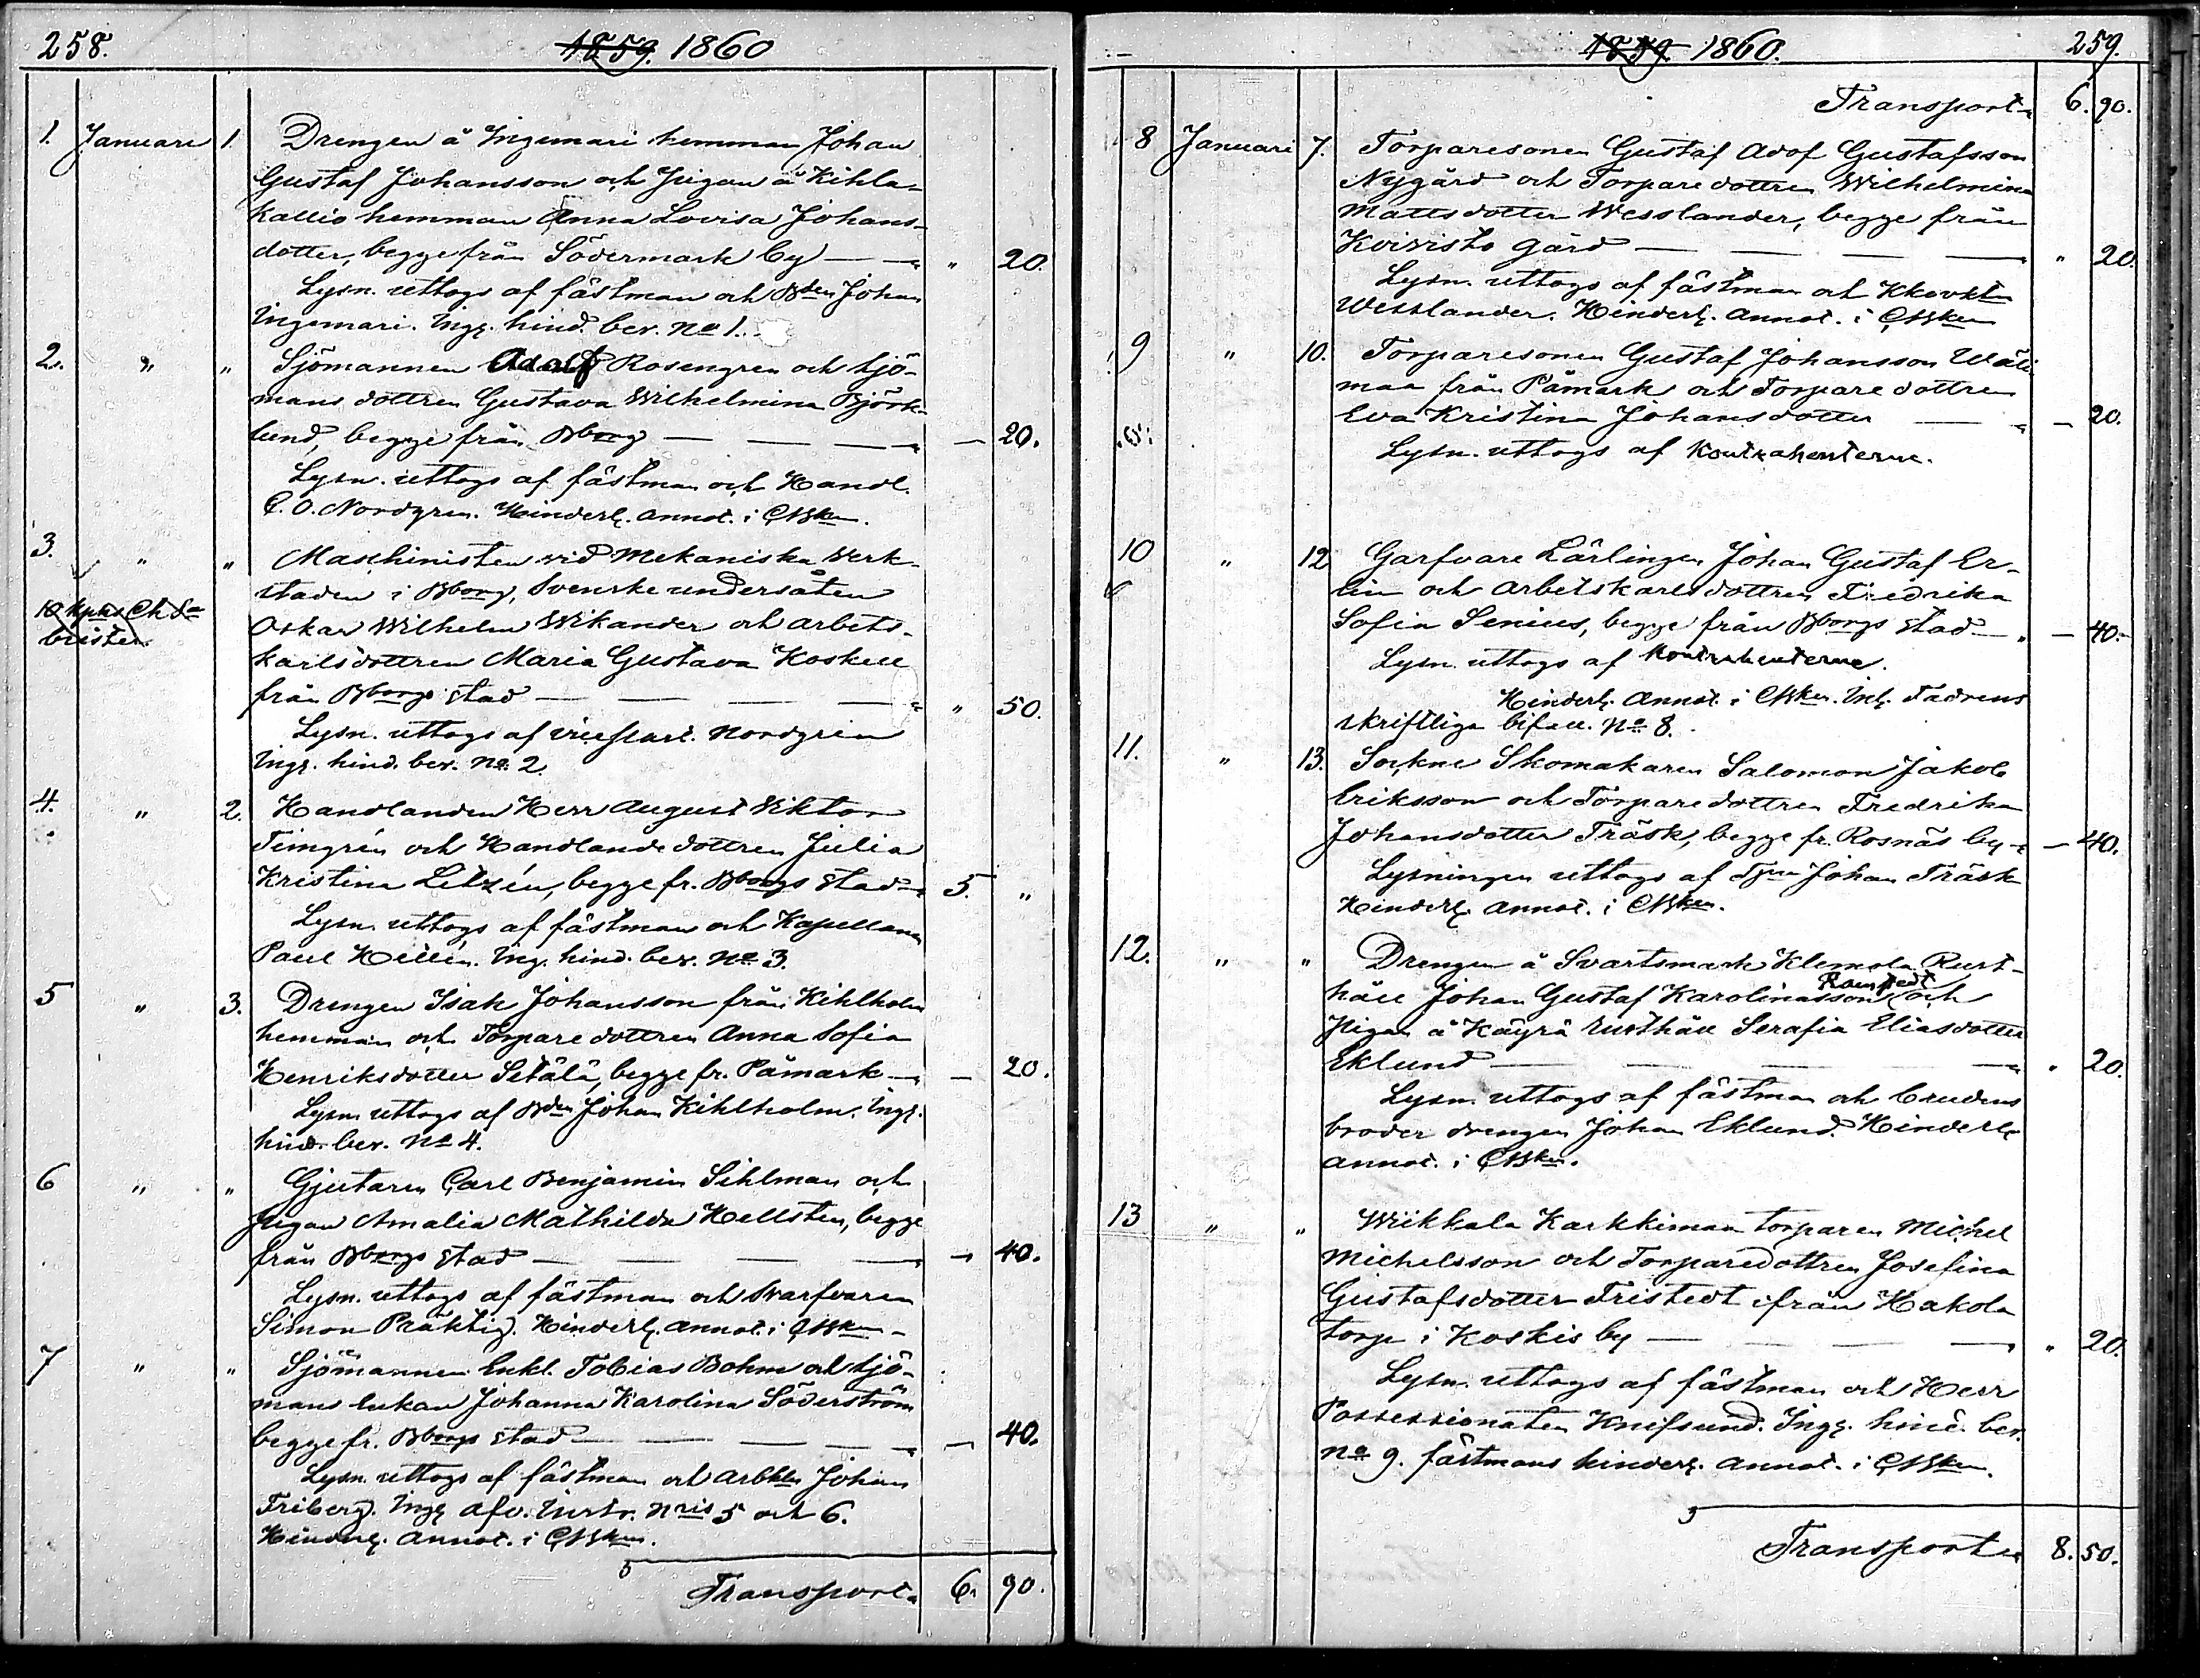 258.
1859. 1860
1. Januari 1. Drengen å Ingemari hemman Johan
Gustaf Johansson och Pigan å Kihla-
kallio hemman Anna Lovisa Johans-
dotter, begge från Södermark by — " 20.
Lysn. uttogs af fästman och Bden Johan
Ingemari. Ingg. hind. bev. No 1.
2. " " Sjömannen Adolf Rosengren och Sjö-
mans dottren Gustava Wilhelmina Björk-
lund, begge från Bborg — — 20.
Lysn. uttogs af fästman och Handl.
C. O. Nordgren. Hinderl. annot. i CBken.
3. " " Maschinisten vid Mekaniska Verk-
staden i Bborg, Svenske undersåten
Oskar Wilhelm Wikander och arbets-
karlsdottren Maria Gustava Koskell
från Bborgs stad — " 50.
Lysn. uttogs af Nordgren
Ingg. hind. bev. No 2.
4. " 2. Handlanden Herr August Viktor
Timgrén och Handlande dottren Julia
Kristina Letzén, begge fr. Bborgs stad 5. "
Lysn. uttogs af fästman och Kapellanen
Paul Hellén. Ing. hind. bev. No 3.
5 " 3. Drengen Isak Johansson från Kihlholm
hemman och Torpare dottren Anna Sofia
Henriksdotter Setälä, begge fr. Påmark — 20.
Lysn. uttogs af Bden Johan Kihlholm. Ingg.
hind. bev. No 4.
6 " " Gjutaren Carl Benjamin Sihlman och
Pigan Amalia Mathilda Hellsten, begge
från Bborgs stad — — 40.
Lysn. uttogs af fästman och Svarfvaren
Simon Präktig. Hinderl. annot. i CBken
7 " " Sjömannen Enkl. Tobias Bohm och Sjö-
mans enkan Johanna Karolina Söderström
begge fr. Bborgs stad — — 40.
Lysn. uttogs af fästman och Arbkln Johan
Friberg. Ingg. afv. instr. Nris 5 och 6.
Hinderl. annot. i CBken.
Transport 6. 90.
1859 1860.
259.
Transport 6. 90.
8 Januari 7. Torparesonen Gustaf Adof Gustafsson
Nygård och Torpare dottren Wilhelmina
Mattsdotter Wesslander, begge från
Koivisto gård — " 20.
Lysn. uttogs af fästman och
Wesslander. Hinderl. annot. i CBken
9 " 10. Torparesonen Gustaf Johansson Wäli-
maa från Påmark och Torpare dottren
Eva Kristina Johansdotter — — 20.
Lysn. uttogs af Kontrahenterne.
10 " 12 Garfvare Lärlingen Johan Gustaf Er-
lin och Arbetskarlsdottren Fredrika
Sofia Senius, begge från Bborgs stad — 40.
Lysn. uttogs af Kontrahenterne.
Hinderl. annot. i CBken. Inl. Fadrens
skriftliga bifall. No 8.
11. " 13. Sockne Skomakaren Salomon Jakob
Eriksson och Torpare dottren Fredrika
Johansdotter Träsk, begge fr. Rosnäs by — 40.
Lysningen uttogs af Johan Träsk
Hinderl. annot. i CBken.
12. " " Drengen å Svartsmark Klemola Rust-
håll Johan Gustaf Karolinasson Ramstedt och
Pigan å Käyrä rusthåll Serafia Eliasdotter
Eklund — " 20.
Lysn. uttogs af fästman och brudens
broder drengen Johan Eklund. Hinderl.
annot. i CBken.
13 " " Wiikkala Karkkimaa torparen Michel
Michelsson och Torparedottren Josefina
Gustafsdotter Fristedt ifrån Hakola
torp i Koskis by — " 20.
Lysn. uttogs af fästman och Herr
Possessionaten Knifsund. Ingg. hind. bev.
No 9. fästmans hinderl. annot. i CBken.
Transport 8. 50.